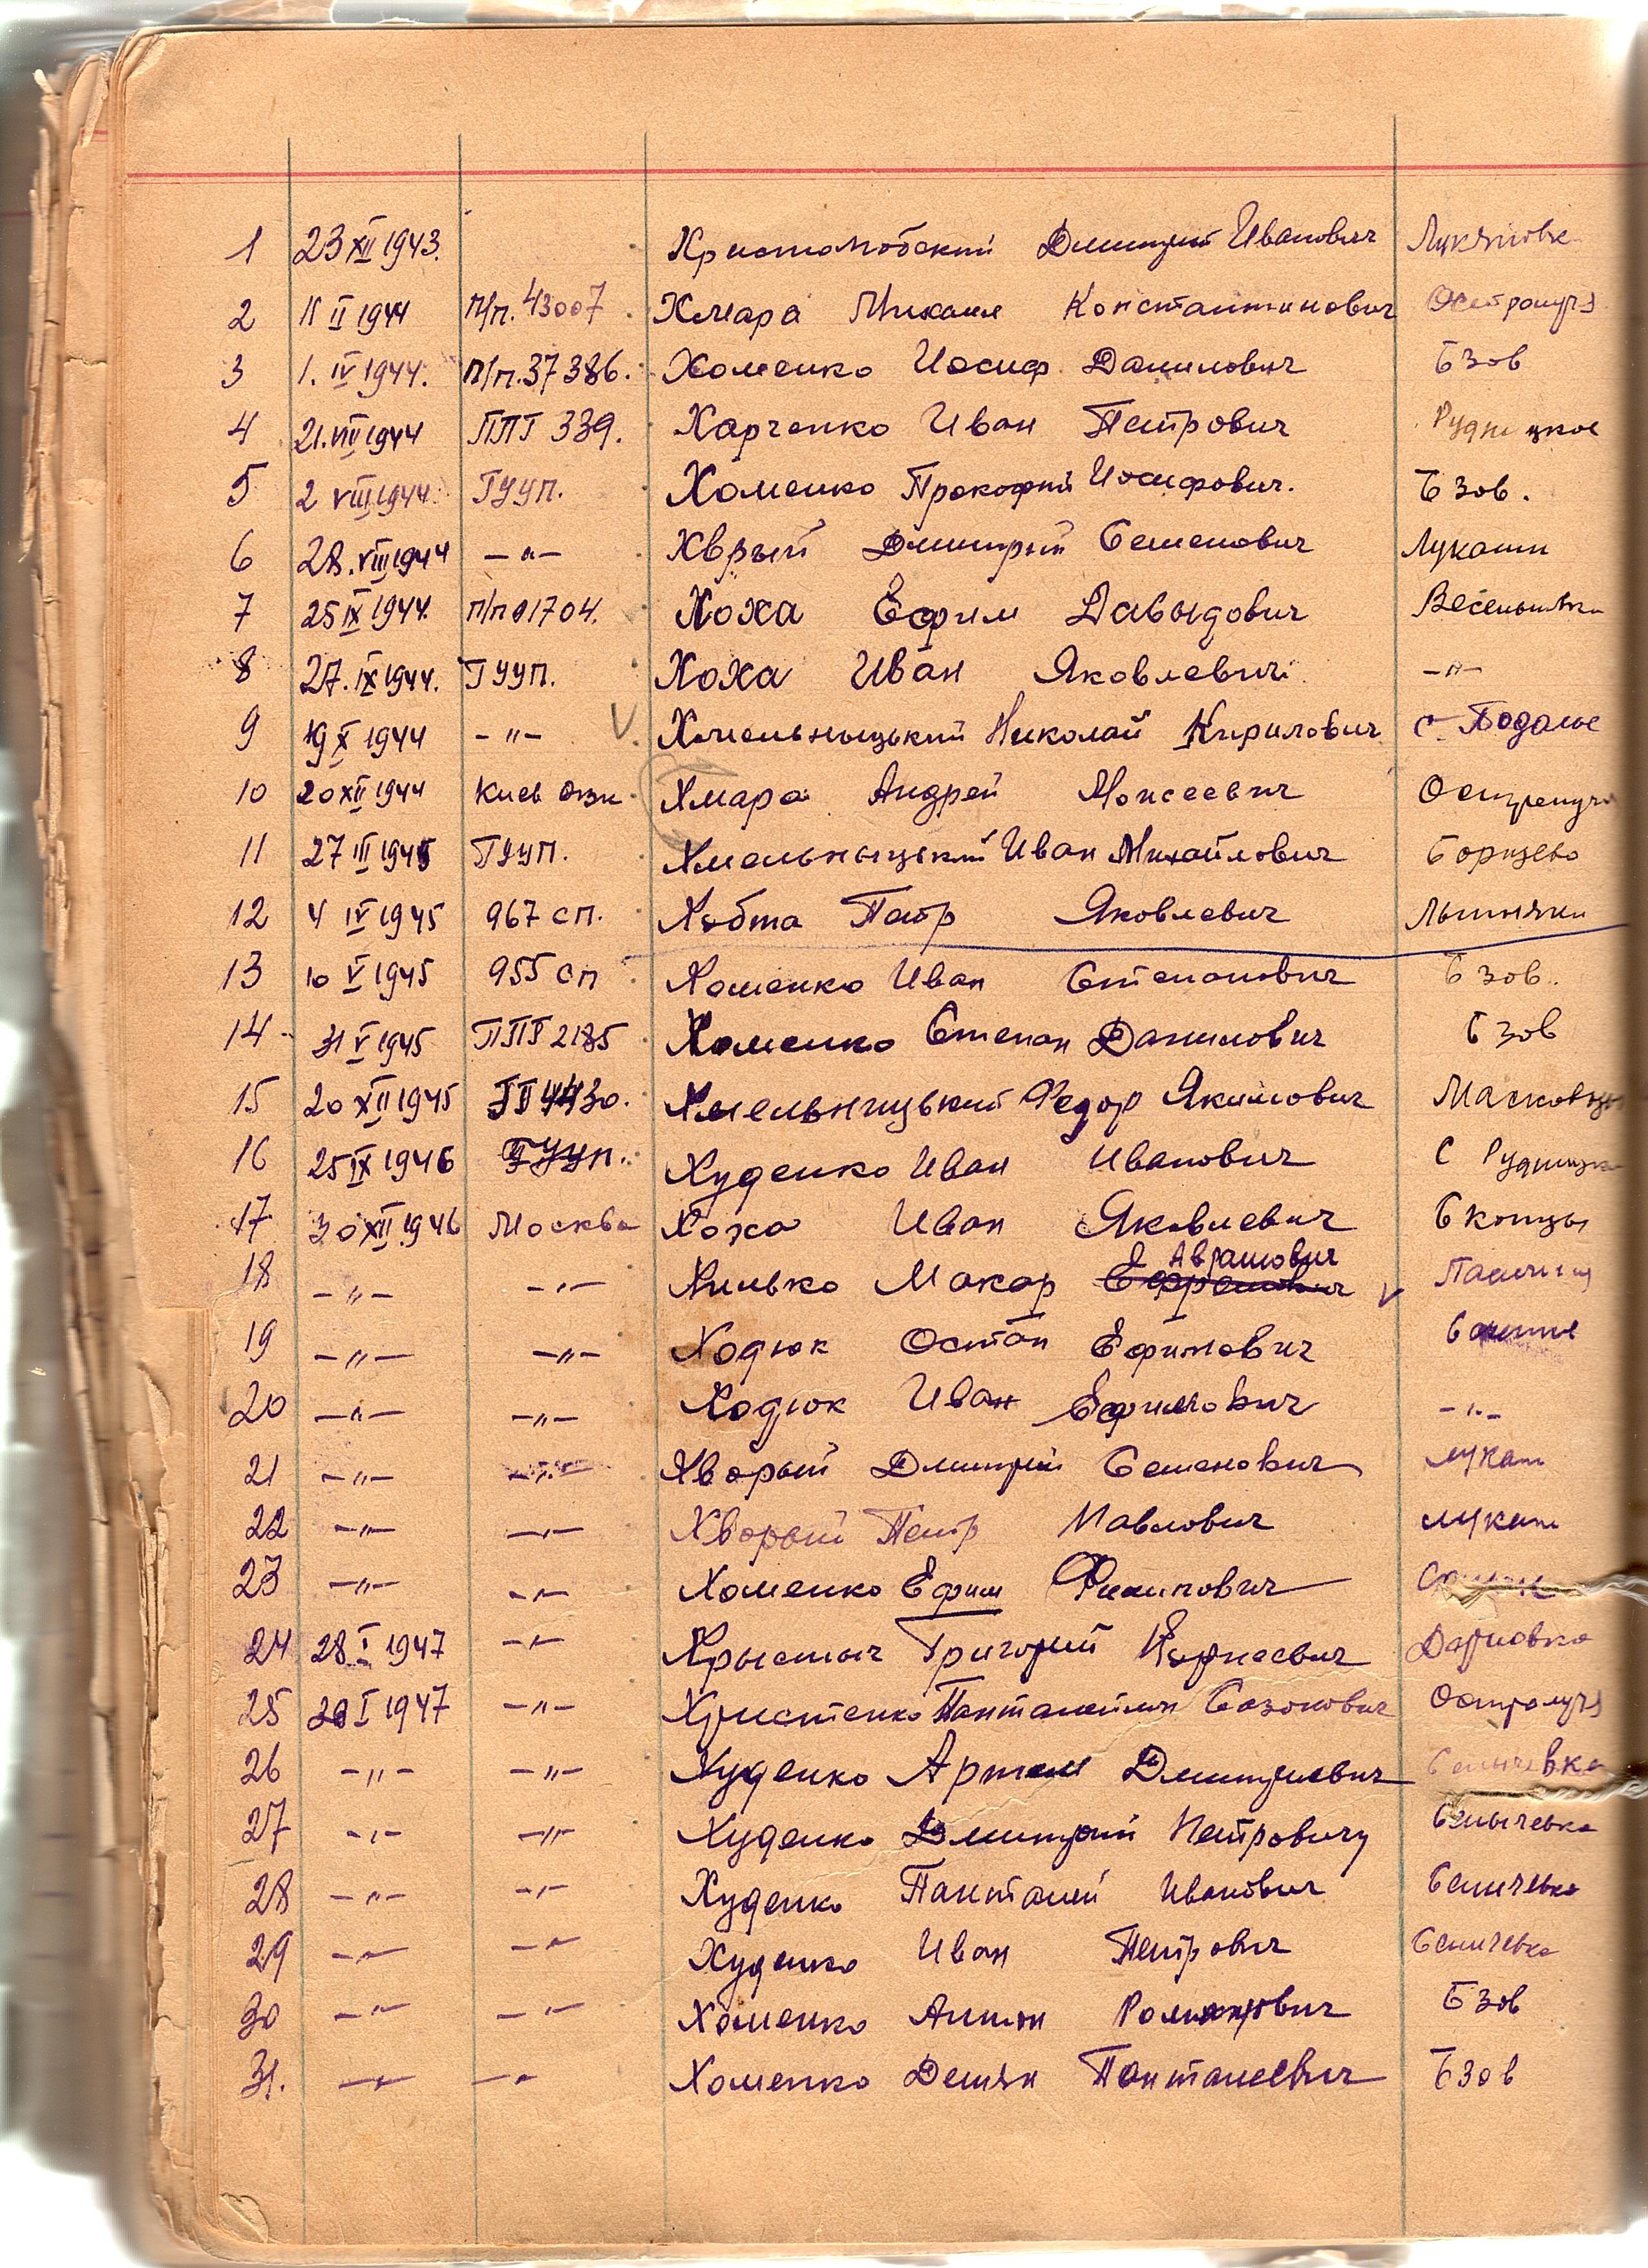 1 23 XII 1943. Христолюбский Дмитрий Иванович
2 II 1944 п/п. 43007 Хмара Михаил Константинович Остролучя
3 1. IV 1944. п/п. 37386. Хоменко Иосиф Данилович Бзов
4 21. VII 1944 ППГ 339. Харченко Иван Петрович Рудницкое
5 2 VIII 1944 ГУУП. Хоменко Прокофий Иосифович. Бзов.
6 28. VIII 1944 -"- Хврый Дмитрий Семенович Лукаши
7 25 IX 1944. п/п 01704. Хоха Ефим Давыдович
8 27. IX 1944. ГУУП. Хоха Иван Яковлевич -"-
9 19 X 1944 -"- V Хмельныцький Николай Кирилович
10 20 XII 1944 Киев Хмара Андрей Моисеевич
11 27 III 1945 ГУУП. Хмельныцький Иван Михайлович Борщево
12 4 IV 1945 967 сп. Петр Яковлевич
13 10 V 1945 955 сп Хоменко Иван Степанович Бзов.
14 31 V 1945 ППГ 2185 Хоменко Степан Данилович Бзов
15 20 XII 1945 Хмельницький Федор Якимович
16 25 IX 1946 ГУУп. Худенко Иван Иванович С
17 30 XII 1946 Москва Хоха Иван Яковлевич
Аврамович
18 -"- -"- Макар Ефремович V
19 -"- -"- Ходюк Остап Ефимович
20 -"- -"- Ходюк Иван Ефимович -"-
21 -"- -"- Хворый Дмитрий Семенович Лукаш
22 -"- -"- Хворый Петр Павлович Лукаш
23 -"- -"- Хоменко Ефим Филипович
24 28 I 1947 -"- Григорий
25 I 1947 -"- Христенко Пантанеймон Сазонович Остролучя
26 -"- -"- Худенко Артем Дмитриевич
27 -"- -"- Худенко Дмитрий Петровичу Семычевка
28 -"- -"- Худенко Панталей Иванович Сеничевка
29 -"- -"- Худенко Иван Петрович Сеничевка
30 -"- -"- Хоменко Антон Романович Бзов
31. -"- -"- Хоменко Демян Панталеевич Бзов